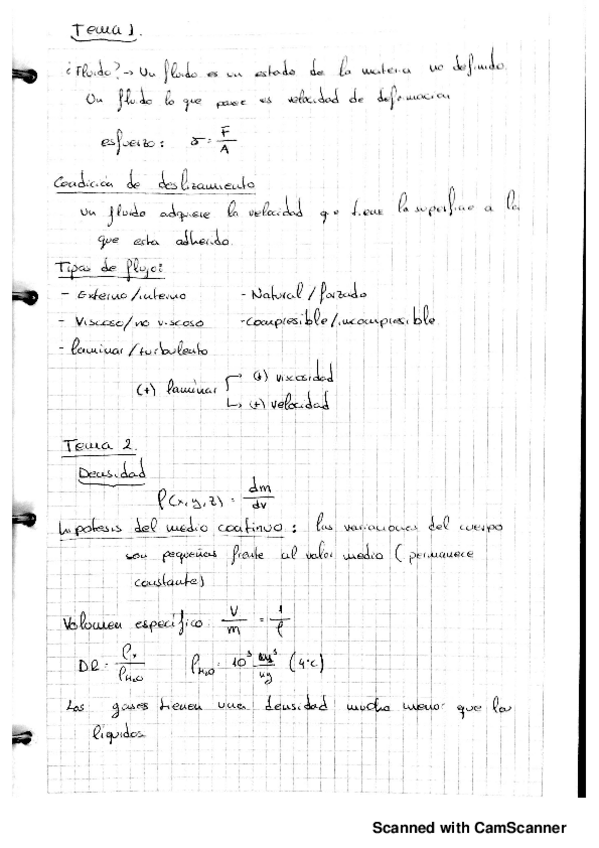 Tema 1.
¿Fluido? → Un fluido es un estado de la materia no definido.
Un fluido lo que posee es velocidad de deformacion
esfuerzo: σ = F/A
Condición de deslizamiento
Un fluido adquiere la velocidad que tiene la superficie a la
que esta adherido.
Tipos de flujo:
- Externo/interno - Natural/forzado
- Viscoso/no viscoso - compresible/incompresible
- laminar/turbulento
(+) laminar (+) viscosidad
↳ (+) velocidad
Tema 2.
Densidad
ρ(x,y,z) = dm/dv
Hipotesis del medio continuo: las variaciones del cuerpo
son pequeñas frente al valor medio (permanece
constante)
Volumen específico: V/m = 1/ρ
DR = ρx/ρH₂O ρH₂O = 10³ (4°C)
Los gases tienen una densidad mucho menor que los
líquidos
Scanned with CamScanner